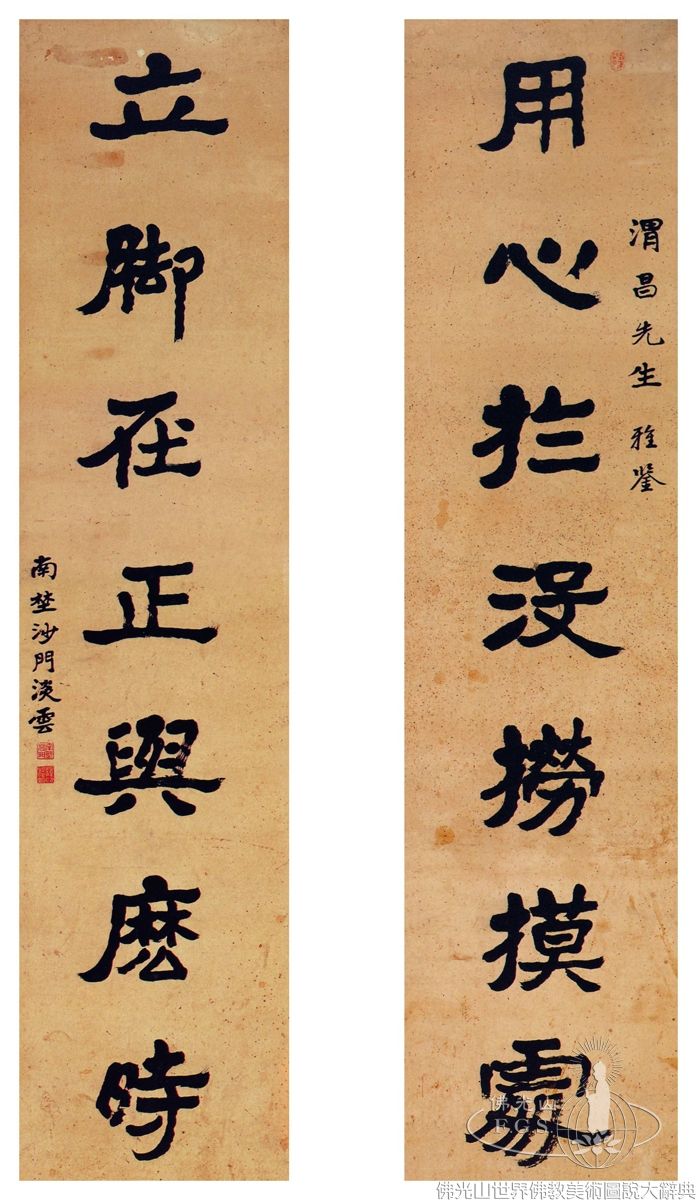 渭昌先生 雅鑒
用心扵没撈摸處
立脚在正與麽時
南埜沙門淡雲
佛光山
F.G.S.
佛光山世界佛教美術圖說大辭典